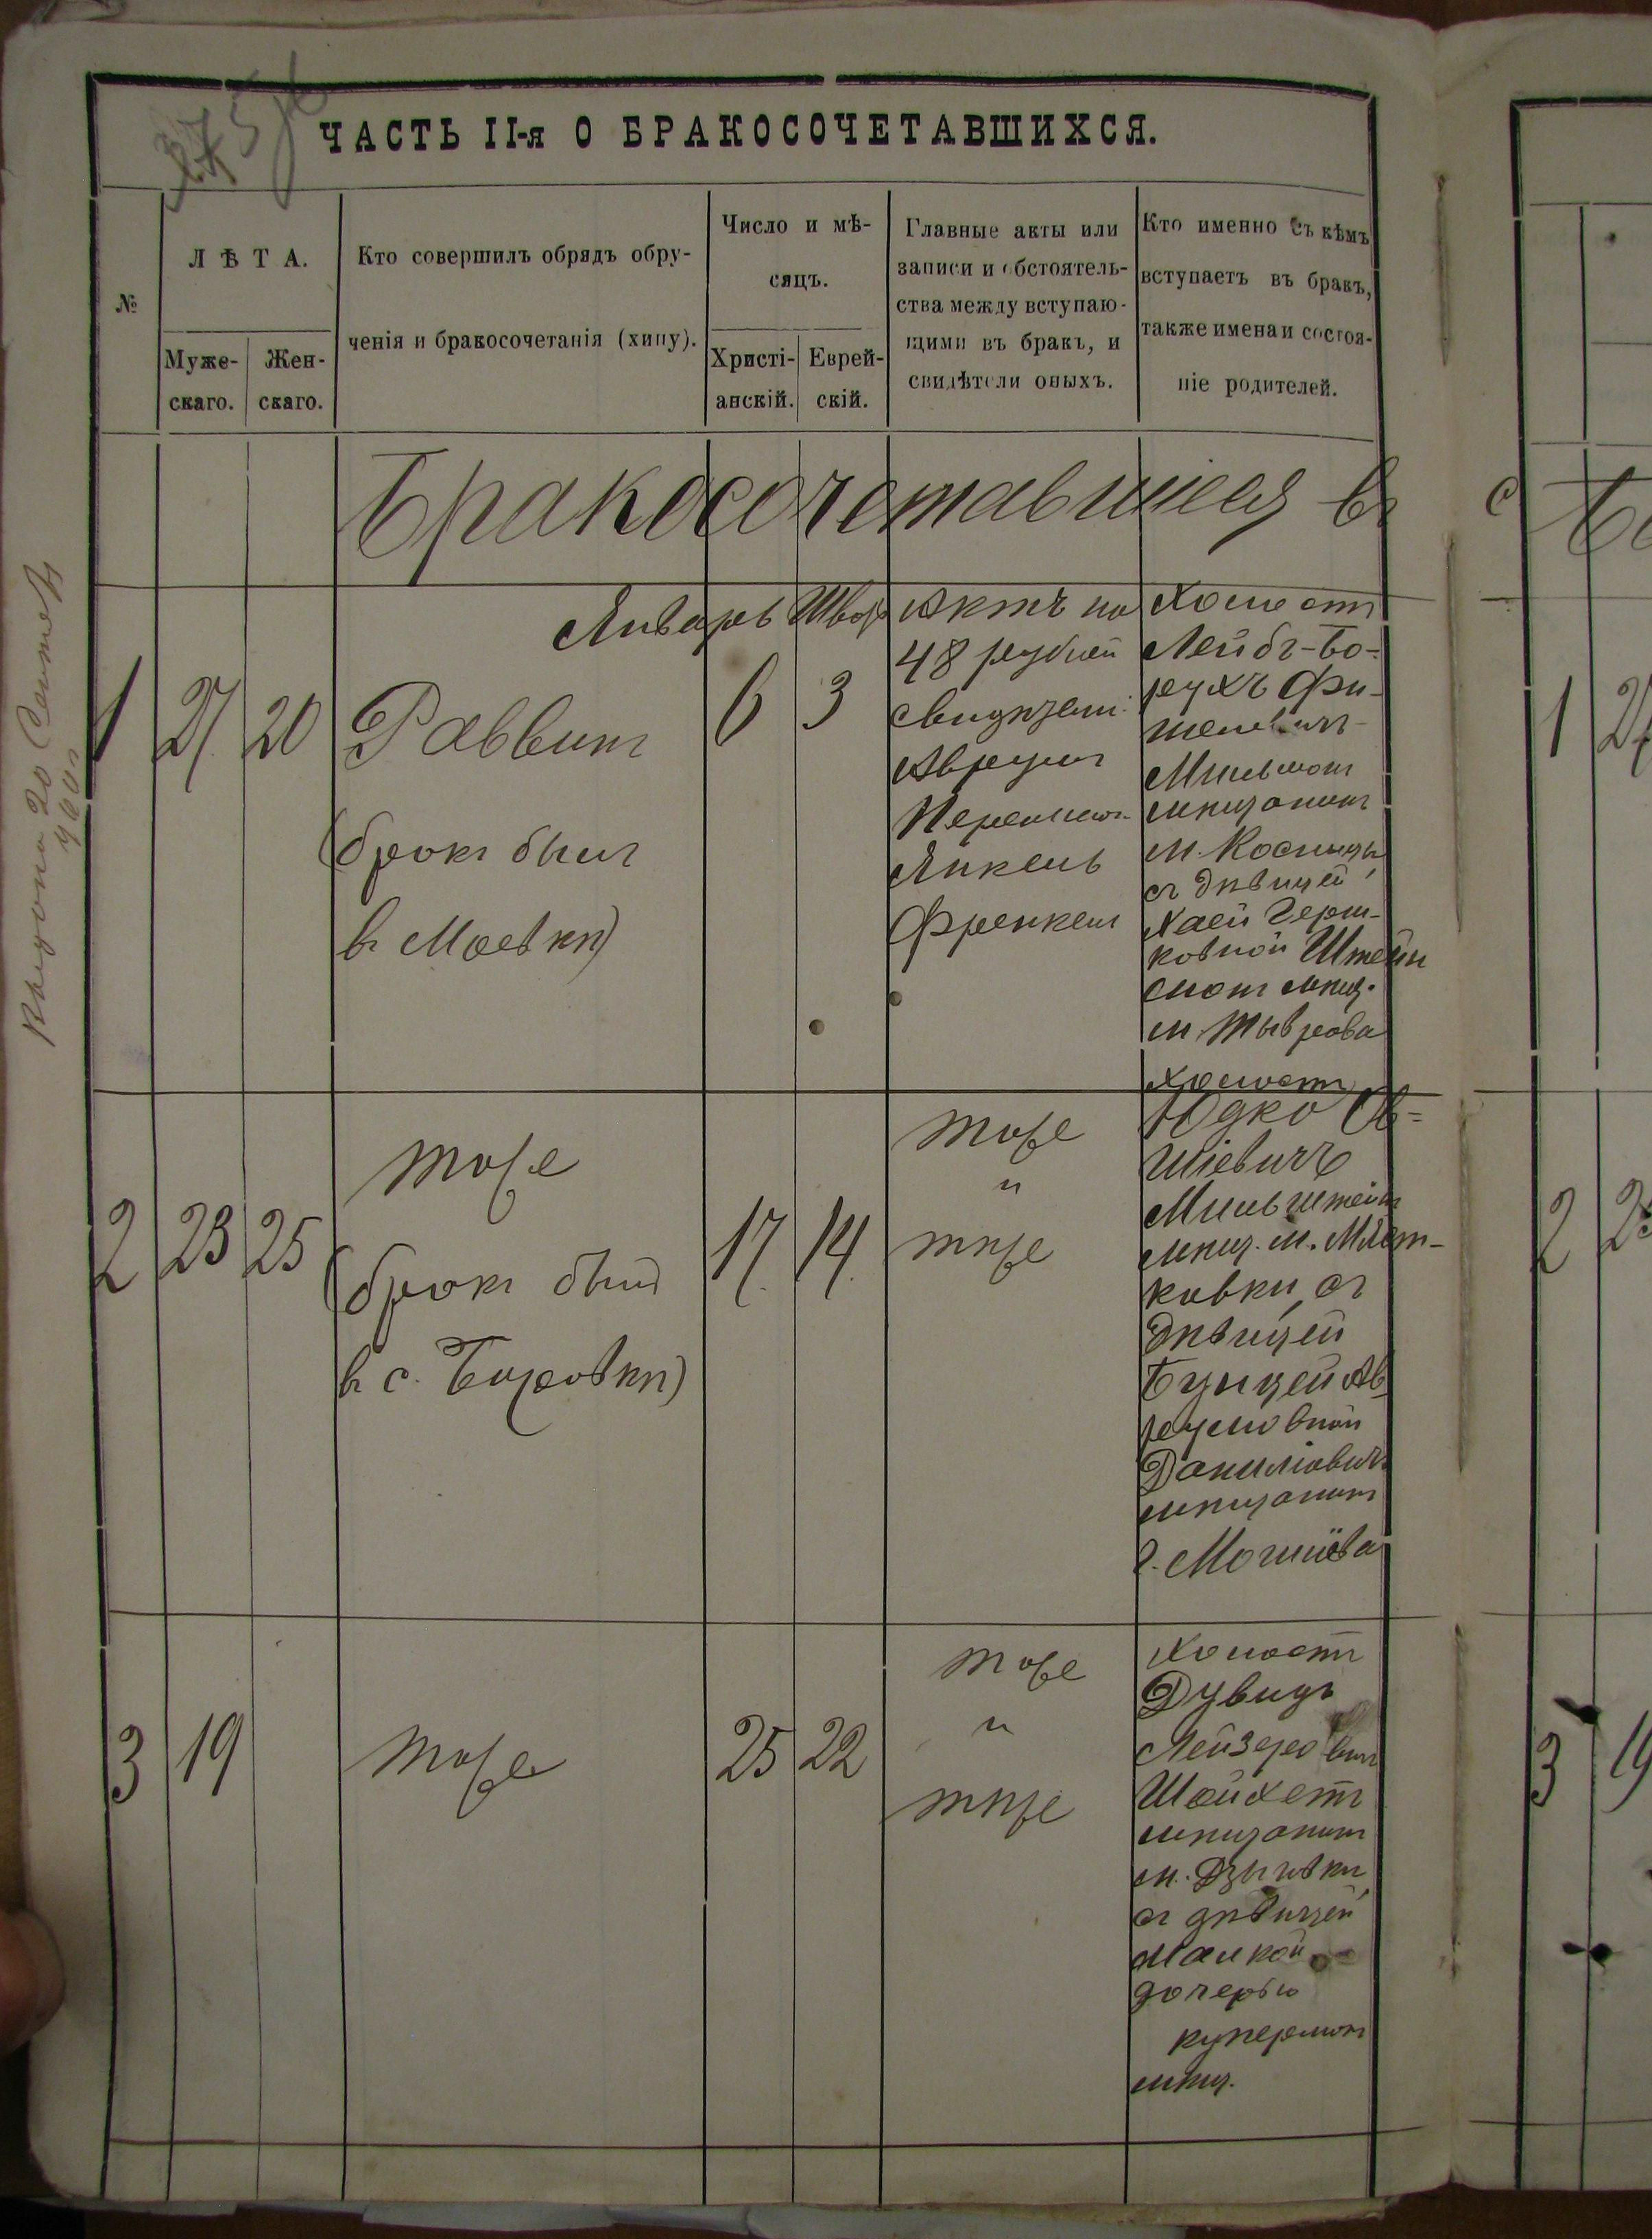 ЧАСТЬ II-я О БРАКОСОЧЕТАВШИХСЯ.
№
ЛѢТА.
Муже-
скаго.
Жен-
скаго.
Кто совершилъ обрядъ обру-
ченія и бракосочетанія (хипу).
Число и мѣ-
сяцъ.
Христі-
анскій.
Еврей-
скій.
Главные акты или
записи и обстоятель-
ства между вступаю-
щими въ бракъ, и
свидѣтели оныхъ.
Кто именно съ кѣмъ
вступаетъ въ бракъ,
также имена и состоя-
ніе родителей.
Бракосочетавшіеся въ
Январь
1
27
20
Раввинъ
(бракъ былъ
въ Моевкѣ)
6
3
Актъ на
48 рублей
свидѣтели
Аврумъ
Перельман
Янкель
Френкель
Холостъ
Лейбъ-Бо-
рухъ Фи-
шелевичъ
Мильманъ
мѣщанинъ
м. Косницы
съ дѣвицей
Хаей Герш-
ковной Штейн
манъ мѣщ.
м. Тыврова
2
23
25
тоже
(бракъ былъ
въ с. Боровкѣ)
17
14
тоже
и
тѣже
Холостъ
Юдко Ов-
шіевичъ
Мильштейн
мѣщ. м. Мяст-
ковки, съ
дѣвицей
Бунцей Ав-
румовной
Даниловичъ
мѣщанинъ
г. Могилева
3
19
тоже
25
22
тоже
и
тѣже
Холостъ
Дувидъ
Лейзеровичъ
Шойхетъ
мѣщанинъ
м. Дзыговки,
съ дѣвицей
Малкой
дочерью
куперманъ
мѣщ.
1
2
3
19